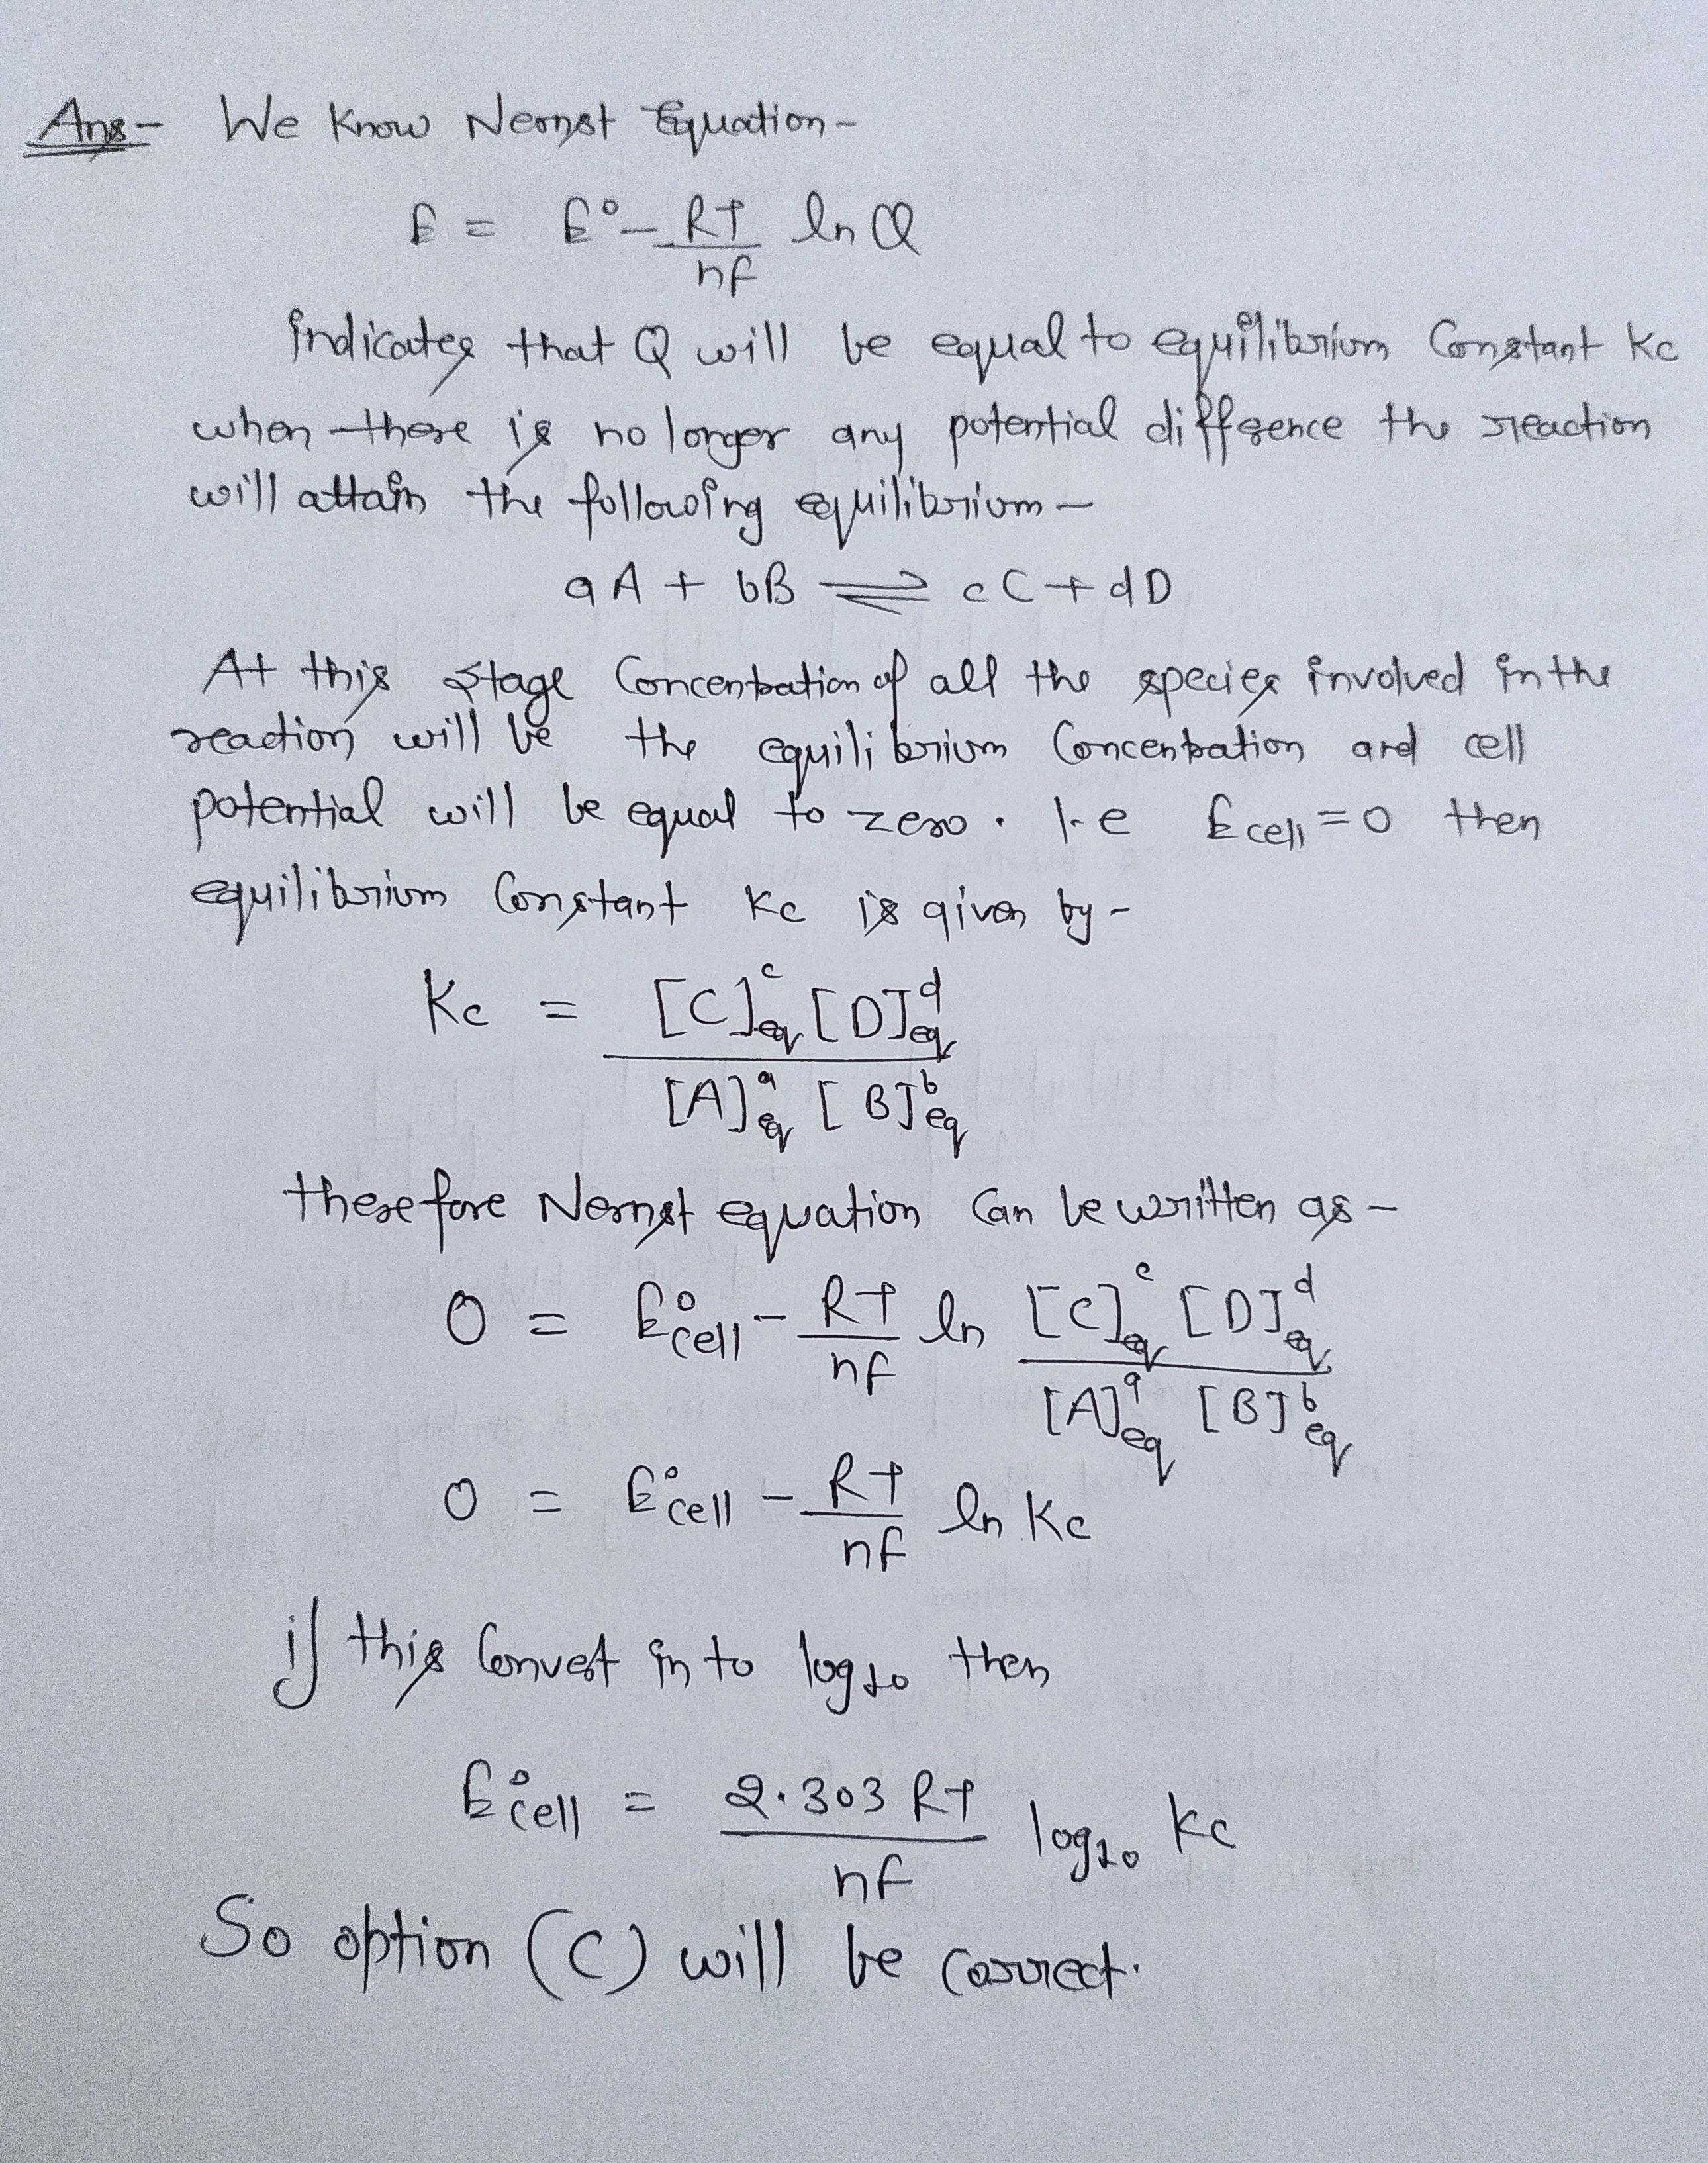 Ans- We Know Nernst Equation-
E = E° - RT/nF ln Q
indicates that Q will be equal to equilibrium Constant Kc
when there is no longer any potential difference the reaction
will attain the following equilibrium-
aA + bB ⇌ cC + dD
At this stage Concentration of all the species involved in the
reaction will be the equilibrium Concentration and cell
potential will be equal to zero. I.e Ecell = 0 then
equilibrium Constant Kc is given by-
Kc = [C]^c_eq [D]^d_eq / [A]^a_eq [B]^b_eq
therefore Nernst equation Can be written as-
0 = E°cell - RT/nF ln [C]^c_eq [D]^d_eq / [A]^a_eq [B]^b_eq
0 = E°cell - RT/nF ln Kc
if this Convert in to log10 then
E°cell = 2.303 RT/nF log10 Kc
So option (C) will be correct.